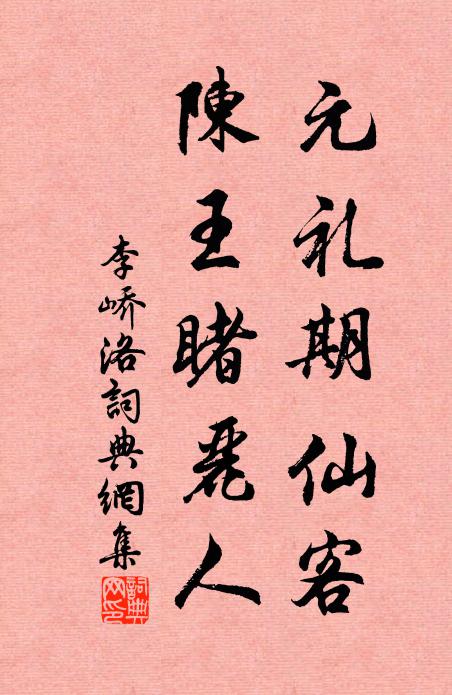 元礼期仙客
陳王睹麗人
李嶠洛詞典網集
詞典網印